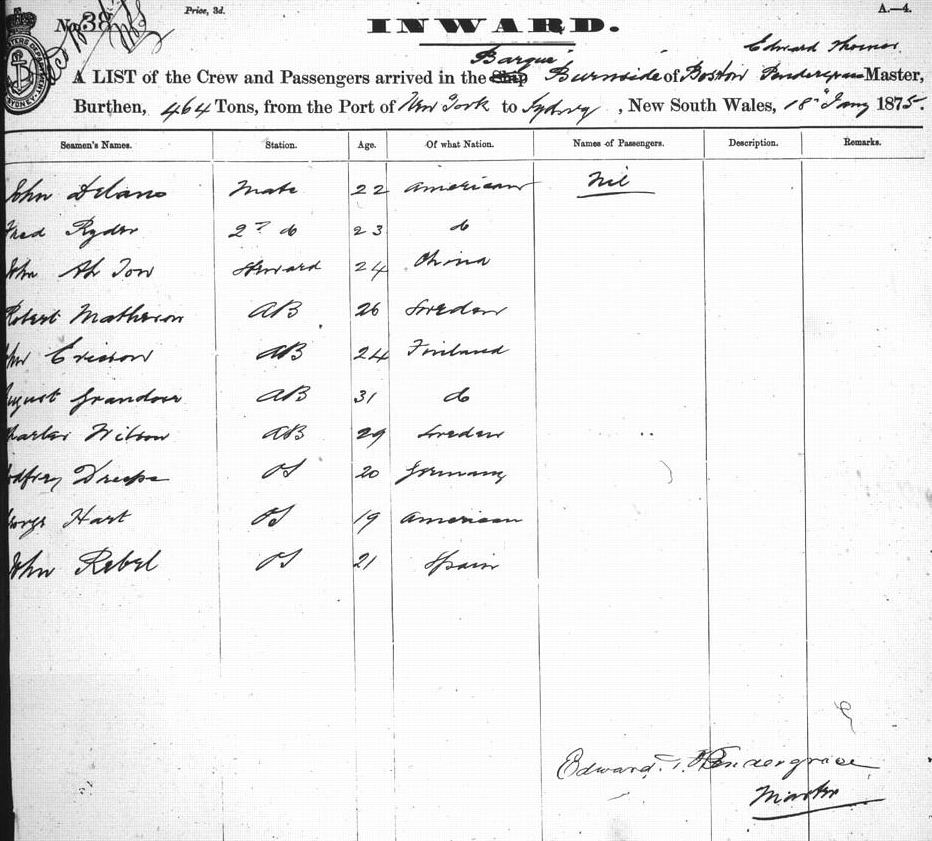 Price, 3d.
A.—4.
No. 38
INWARD.
Barque Edward Thomas
A LIST of the Crew and Passengers arrived in the Ship Burnside of Boston Master,
Burthen, 464 Tons, from the Port of New York to Sydney, New South Wales, 18th Jany 1875.
Seamen's Names. Station. Age. Of what Nation. Names of Passengers. Description. Remarks.
John Delano Mate 22 American Nil
Fred Ryder 2nd do 23 do
John Ah Tow Steward 24 China
Robert Matheson AB 26 Sweden
John Ericson AB 24 Finland
August AB 31 do
Charles Wilson AB 29 Sweden
Godfrey OS 20 Germany
George Hart OS 19 American
John Rebel OS 21 Spain
Edward T. Pendergrace
Master